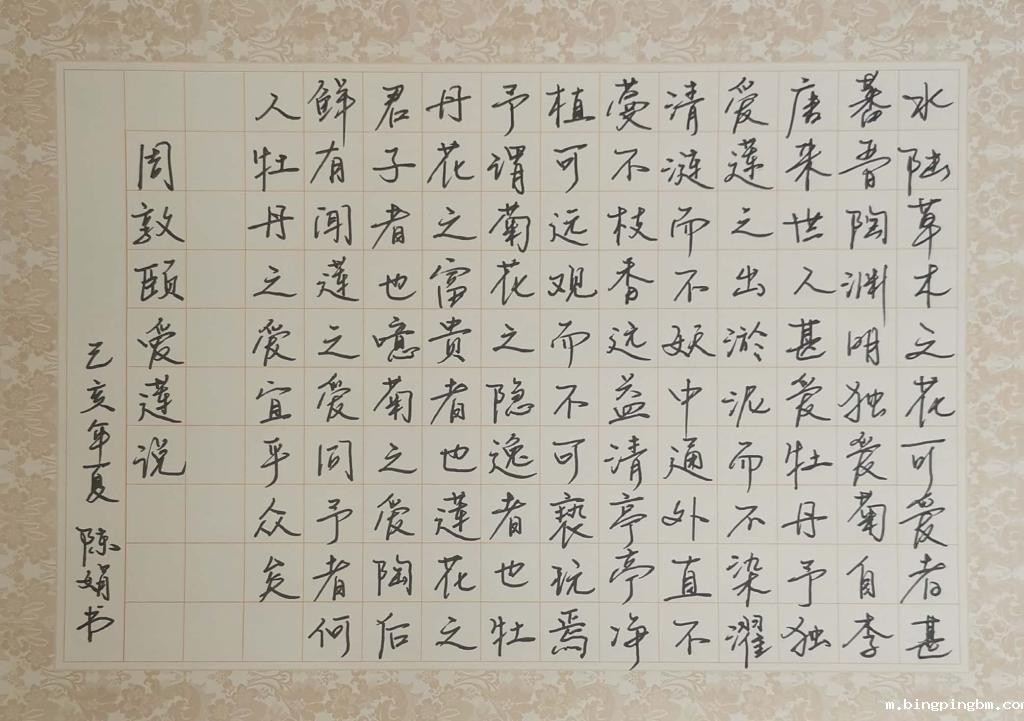 水陆草木之花可爱者甚
蕃晋陶渊明独爱菊自李
唐来世人甚爱牡丹予独
爱莲之出淤泥而不染濯
清涟而不妖中通外直不
蔓不枝香远益清亭亭净
植可远观而不可亵玩焉
予谓菊花之隐逸者也牡
丹花之富贵者也莲花之
君子者也噫菊之爱陶后
鲜有闻莲之爱同予者何
人牡丹之爱宜乎众矣
周敦颐爱莲说
乙亥年夏 陈娟书
m.bingpingbm.com